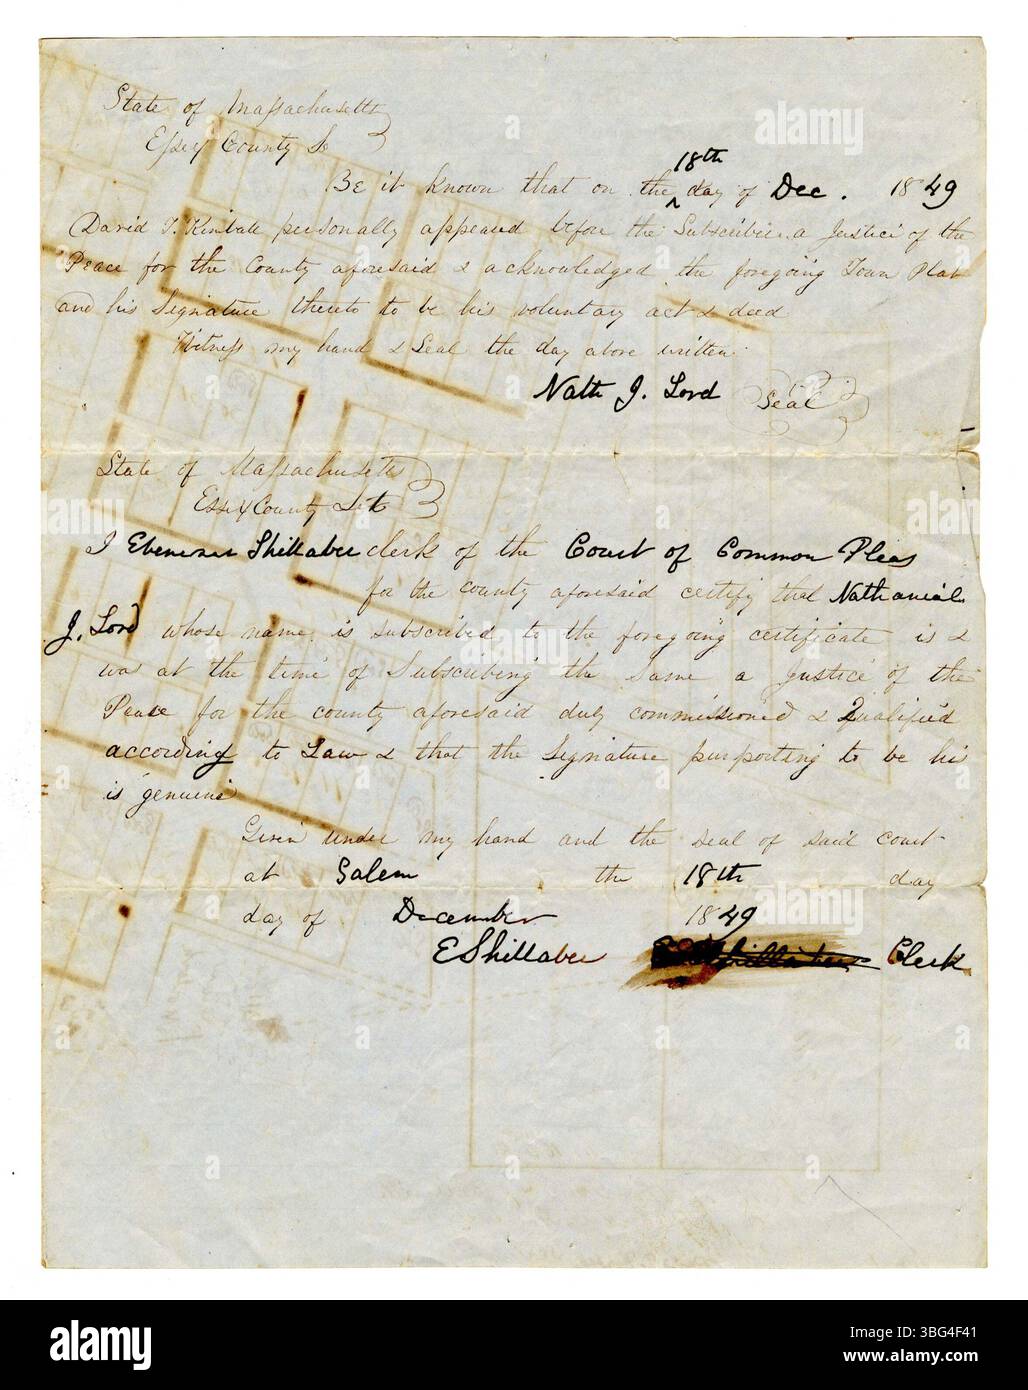 State of Massachusetts
Essex County Ss
18th
Be it known that on the ^ day of Dec. 1849
David T. Kimball personally appeared before the Subscriber a Justice of the
Peace for the County aforesaid & acknowledged the foregoing Town Plat
and his Signature thereto to be his voluntary act & deed
Witness my hand & Seal the day above written
Nathl J. Lord Seal
State of Massachusetts
Essex County Sct
I Ebenezer Shillaber clerk of the Court of Common Pleas
for the county aforesaid certify that Nathaniel
J. Lord whose name is subscribed to the foregoing certificate is &
was at the time of Subscribing the Same a Justice of the
Peace for the county aforesaid duly commissioned & Qualified
according to Law & that the Signature purporting to be his
is genuine
Given under my hand and the seal of said court
at Salem the 18th day
day of December 1849
E Shillaber Clerk
alamy
Image ID: 3BG4F41
www.alamy.com